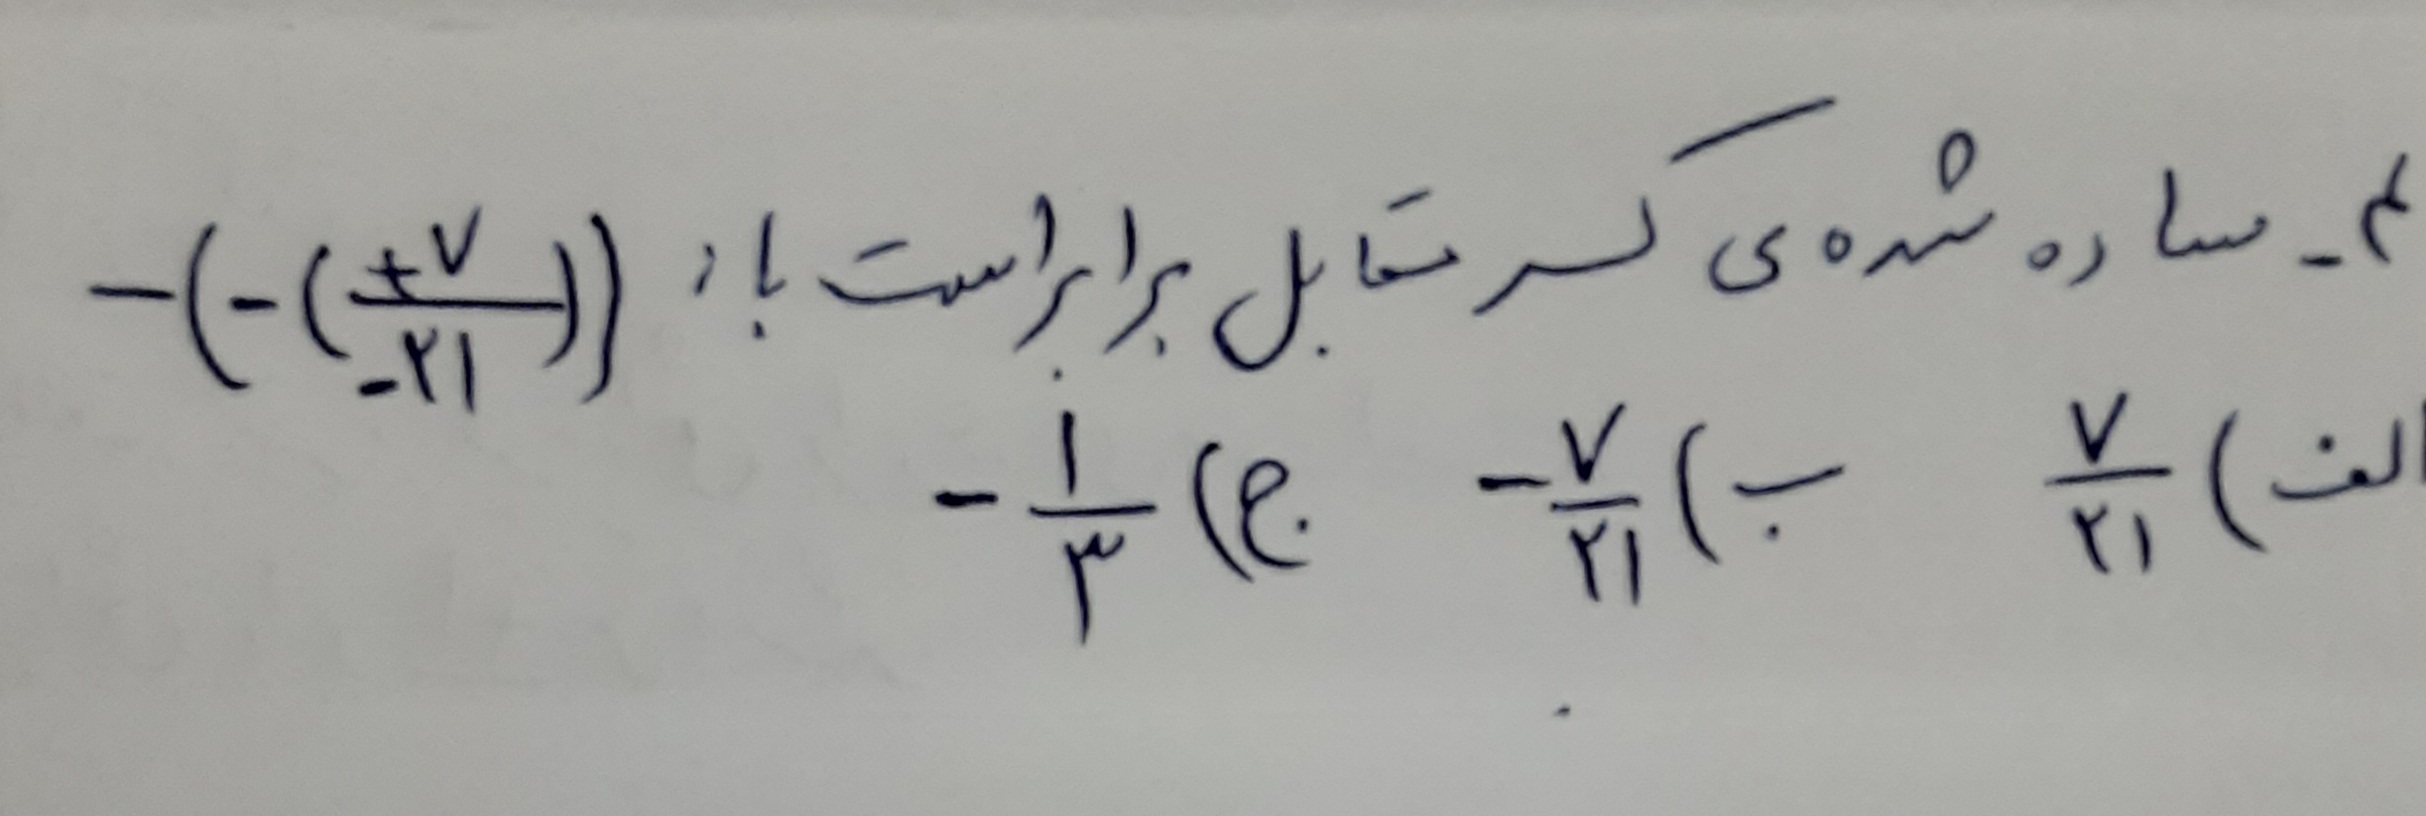 ۴- ساده شده‌ی کسر مقابل برابر است با: -(-(+۷/-۲۱))
الف) ۷/۲۱ ب) -۷/۲۱ ج) -۱/۳